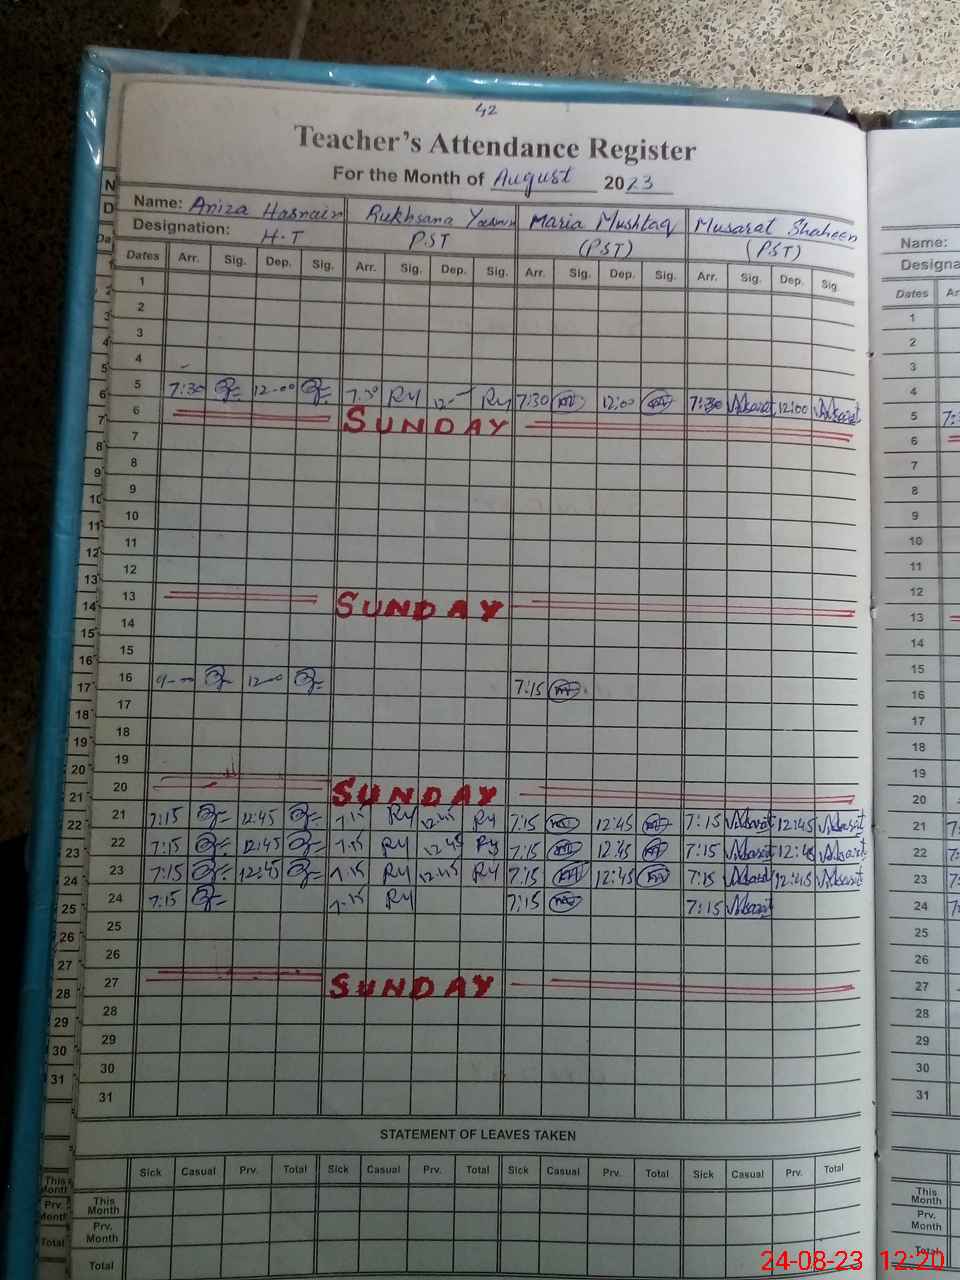 42
Teacher's Attendance Register
For the Month of August 2023
Name: Aniza Hasnain Rukhsana Maria Mushtaq Musarat Shaheen
Designation: H.T PST (PST) (PST)
Dates Arr. Sig. Dep. Sig. Arr. Sig. Dep. Sig. Arr. Sig. Dep. Sig. Arr. Sig. Dep. Sig.
1
2
3
4
5 7:30 12-00 7:30 Ry 12- Ry 7:30 12:00 7:30 12:00
6 SUNDAY
7
8
9
10
11
12
13 SUNDAY
14
15
16 9-00 12-00 7:15
17
18
19
20 SUNDAY
21 7:15 12:45 7:15 Ry 12:45 Ry 7:15 12:45 7:15 12:45
22 7:15 12:45 7:15 Ry 12:45 Ry 7:15 12:45 7:15 12:45
23 7:15 12:45 7:15 Ry 12:45 Ry 7:15 12:45 7:15 12:45
24 7:15 7:15 Ry 7:15 7:15
25
26
27 SUNDAY
28
29
30
31
STATEMENT OF LEAVES TAKEN
Sick Casual Prv. Total Sick Casual Prv. Total Sick Casual Prv. Total Sick Casual Prv. Total
This Month
Prv. Month
Total
Name:
Dates
1
2
3
4
5
6
7
8
9
10
11
12
13
14
15
16
17
18
19
20
21
22
23
24
25
26
27
28
29
30
31
This Month
Prv. Month
Total
24-08-23 12:20